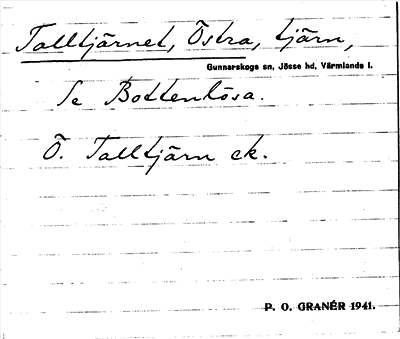 Talltjärnet, Östra, tjärn,
Gunnarskogs sn, Jösse hd, Värmlands l.
Se Bottenlösa.
Ö. Talltjärn ek.
P. O. GRANÉR 1941.